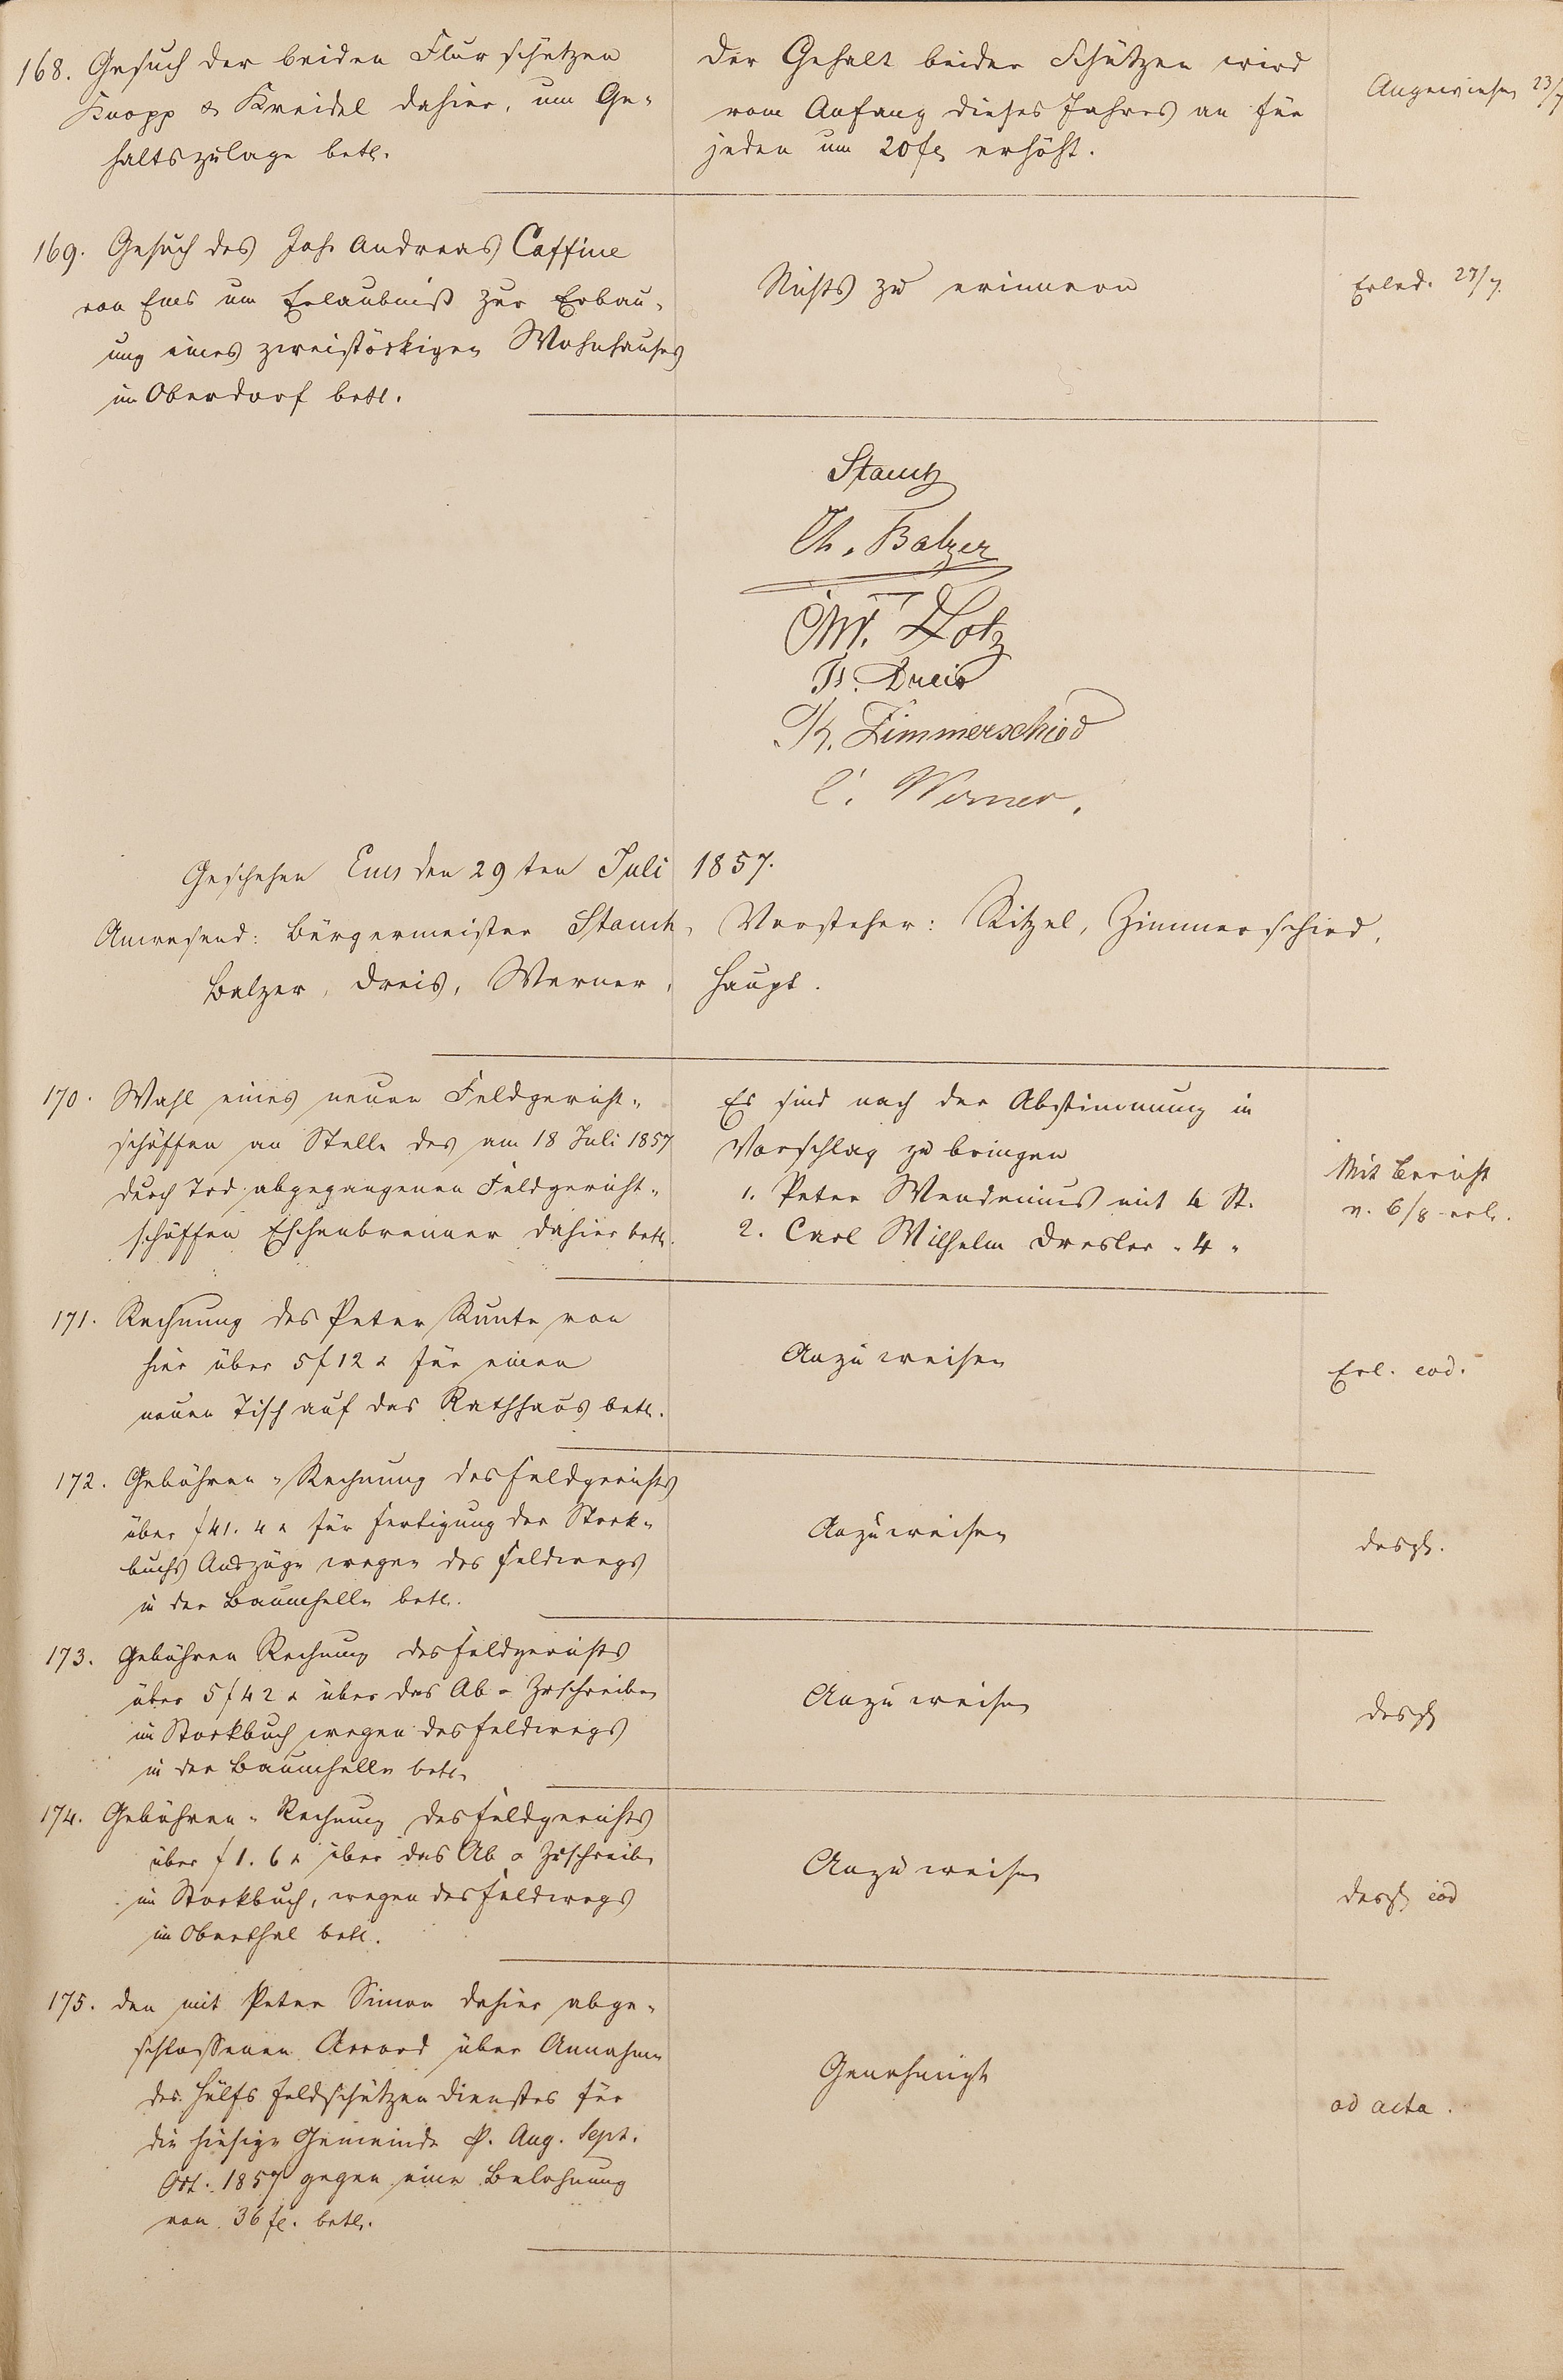 168. Gesuch der beiden Flurschützen
Knopp & Kreidel dahier, um Ge-
haltszulage betr.
Der Gehalt beider Schützen wird
vom Anfang dieses Jahres an für
jeden um 20 fl erhöht.
Angewiesen 23/7
169. Gesuch des Joh. Andreas Caffine
von Ems um Erlaubniß zur Erbau-
ung eines zweistöckigen Wohnhauses
im Oberdorf betr.
Nichts zu erinnern
Erled. 27/7.
Stauch
Th. Balzer
Lotz
Dreis
Zimmerschied
C. Werner.
Geschehen Ems den 29ten Juli 1857.
Anwesend: Bürgermeister Stauch, Vorsteher: Kitzel, Zimmerschied,
Balzer, Dreis, Werner, Haupt.
170. Wahl eines neuen Feldgericht-
schöffen an Stelle des am 18 Juli 1857
durch Tod abgegangenen Feldgericht-
schöffen Eschenbrenner dahier betr.
Es sind nach der Abstimmung in
Vorschlag zu bringen
1. Peter Wendenius mit 4 St.
2. Carl Wilhelm Dresler " 4 "
Mit Bericht
v. 6/8 erl.
171. Rechnung des Peter Kunte von
hier über 5 f 12 x für einen
neuen Tisch auf das Rathhaus betr.
Anzuweisen
Erl. eod.
172. Gebühren-Rechnung des Feldgerichts
über f 41. 4 x für Fertigung der Stock-
buchs Auszüge wegen des Feldwegs
in der Baumhelle betr.
Anzuweisen
desgl.
173. Gebühren Rechnung des Feldgerichts
über 5 f 42 x über das Ab- & Zuschreiben
im Stockbuch wegen des Feldwegs
in der Baumhelle betr.
Anzuweisen
desgl
174. Gebühren-Rechnung des Feldgerichts
über f 1. 6 x über das Ab & Zuschreiben
im Stockbuch, wegen des Feldwegs
im Oberthal betr.
Anzuweisen
desgl eod
175. Den mit Peter Simon dahier abge-
schlossenen Accord über Annahme
des Hülfsfeldschützendienstes für
die hiesige Gemeinde p. Aug. Sept.
Oct. 1857 gegen eine Belohnung
von 36 fl. betr.
Genehmigt
ad acta.